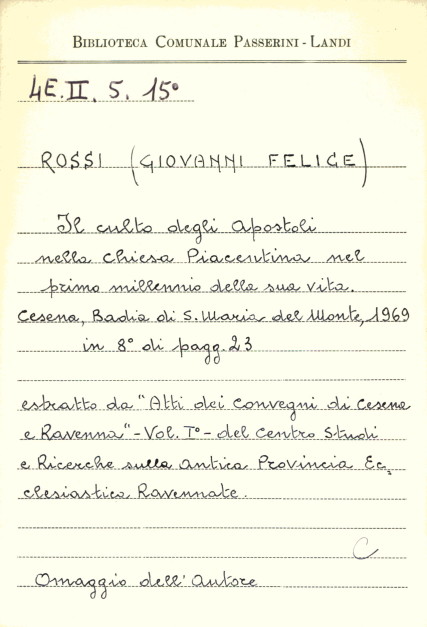 BIBLIOTECA COMUNALE PASSERINI - LANDI
4E.II. 5. 15°
ROSSI (GIOVANNI FELICE)
Il culto degli Apostoli
nella Chiesa Piacentina nel
primo millennio della sua vita.
Cesena, Badia di S. Maria del Monte, 1969
in 8° di pagg. 23
estratto da "Atti dei Convegni di Cesena
e Ravenna" - Vol. I° - del Centro Studi
e Ricerche sulla antica Provincia Ec=
clesiastica Ravennate.
C
Omaggio dell'Autore